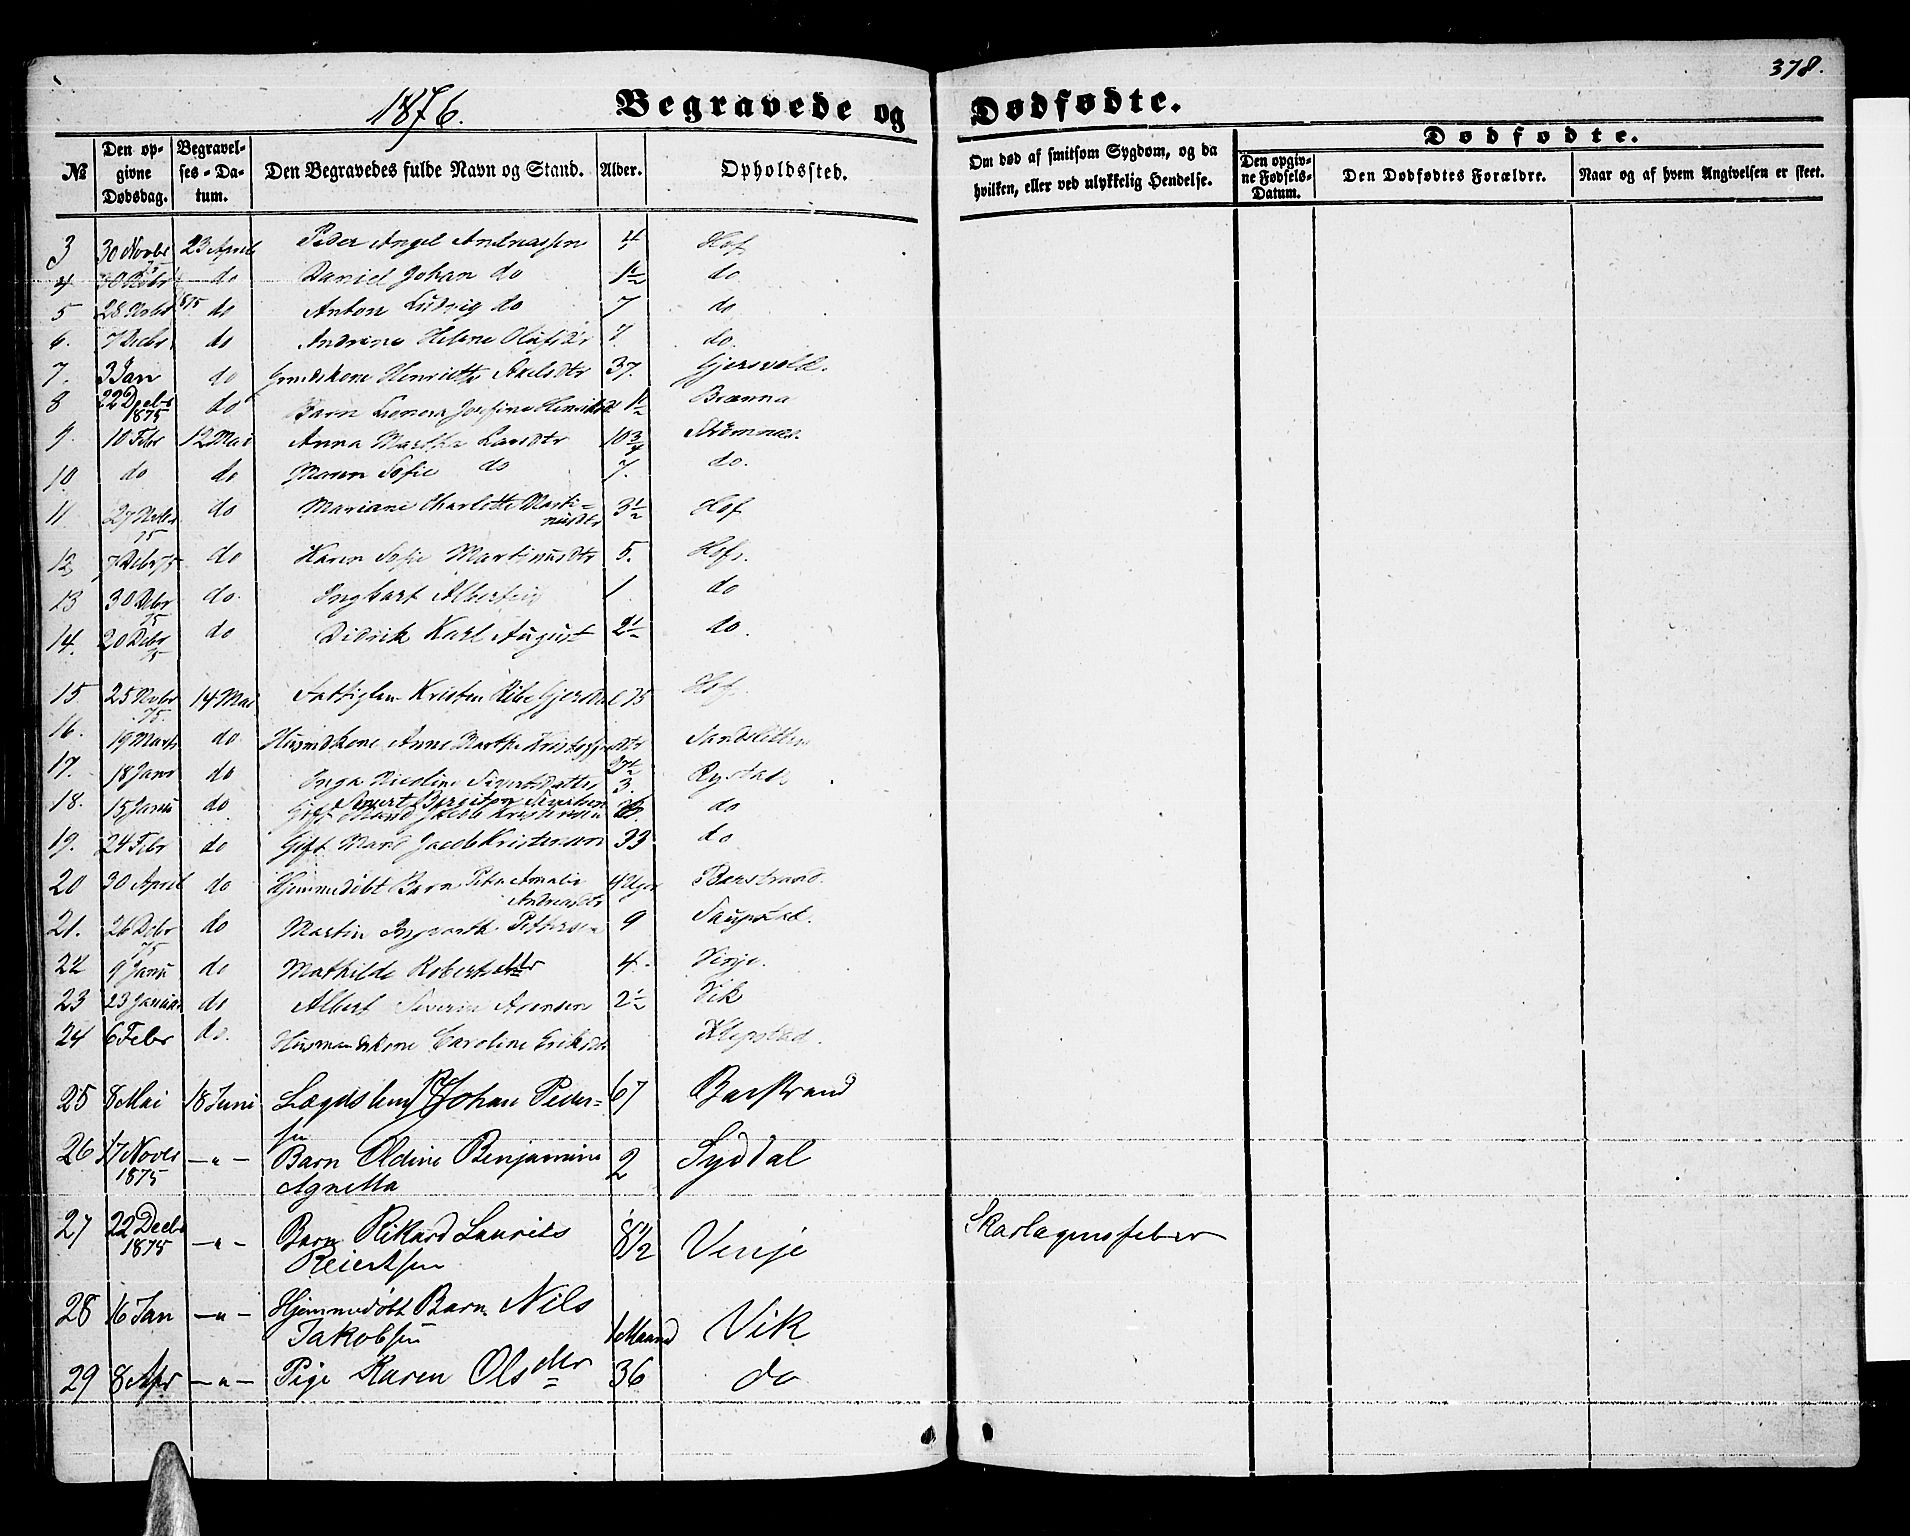 378.
1876. Begravede og Dødfødte.
№ Den opgivne Dødsdag. Begravelses-Datum. Den Begravedes fulde Navn og Stand. Alder. Opholdssted. Om død af smitsom Sygdom, og da hvilken, eller ved ulykkelig Hendelse. Dødfødte. Den opgivne Fødsels-Datum. Den Dødfødtes Forældre. Naar og af hvem Angivelsen er skeet.
3 30 Novbr 23 April Peder Angel Andreassen 4 Hof
4 do Daniel Johan do 1½ do
5 28 Novbr 1875 do Anton Ludvig do 7 do
6. 7 Decbr do Andrine Helene Olufsdtr 7. do.
7. 3 Jan do Henriette 37. Gjersvold.
8 22 Decbr 1875 do Barn Josefine 1½ Brænna
9. 10 Febr 12 Mai Anna Martha Larsdtr 10¾ Strømnæs
10 do do Maren Sofie do 7. do.
11 27 Novbr 75 do Mariane Charlotte Marti-
nusdtr 3½ Hof
12 7 Debr 75 do Karen Sofie Martinusdtr 5. Hof.
13 30 Debr 75 do. Ingbart 1 do
14. 20 Debr 75 do Didrik Karl August 2½ do.
15 25 Novbr 75 14 Mai Fattiglem Kristen 75 Hof
16. 19 Marts do Husmdskone Anne Marthe Sandsletten
17. 18 Janr do Inga Nicoline Sivertsdatter 3. Rystad
18. 15 Janu do. Sivert Sivertsen do
19. 24 Febr do Gift Mand Jacob Kristensen 33 do
20 30 April do Hjemmedøbt Barn Petra Amalie
Andreasdtr 4 Uger Barstrand.
21. 26 Debr 75 do Martin Ingvarth Pettersen 9 Saupstad.
22 9 Janu do Mathilde Robertsdtr 4. Venje.
23 23 Januar do Albert Severin Arensen 2½ Vik
24 6 Febr do. Husmandskone Caroline Eriksdtr Klepstad.
25 8 Mai 18 Juni Lægdslem Johan Peder-
sen 67 Barstrand
26 17 Novbr 1875 —"— Barn Oldine Benjamine
Agnetta 2 Syddal
27 22 Decbr 1875 —"— Barn Rikard Laurits
Reiertsen 8½ Venje Skarlagensfeber
28 16 Jan —"— Hjemmedøbt Barn Nils
Jakobsen 1 Maaned Vik
29 8 Apr —"— Pige Karen Olsdtr 36 do